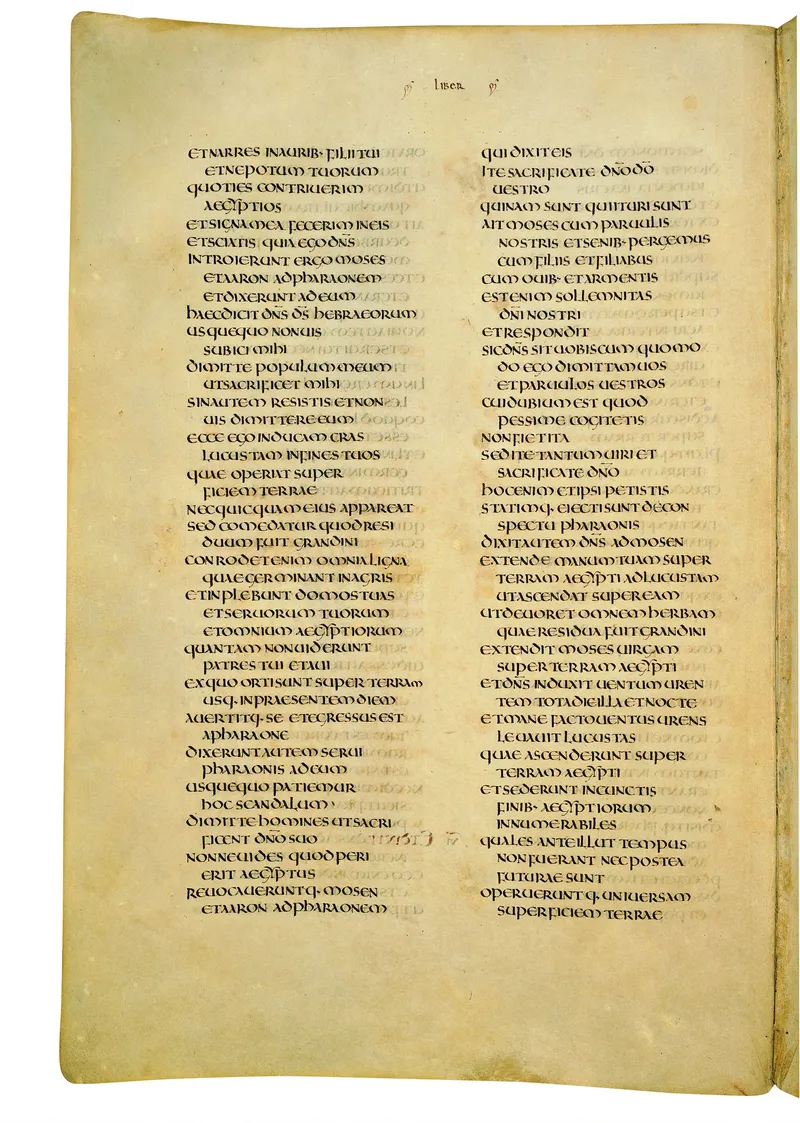 LIBER
ETNARRES INAURIB· FILII TUI
ETNEPOTUM TUORUM
QUOTIES CONTRIUERIM
AEGYPTIOS
ETSIGNAMEA FECERIM INEIS
ETSCIATIS QUIA EGO DN̄S
INTROIERUNT ERGO MOSES
ETAARON ADPHARAONEM
ETDIXERUNT ADEUM
HAECDICIT DN̄S D̄S HEBRAEORUM
USQUEQUO NONUIS
SUBICI MIHI
DIMITTE POPULUM MEUM
UTSACRIFICET MIHI
SINAUTEM RESISTIS ETNON
UIS DIMITTERE EUM
ECCE EGO INDUCAM CRAS
LUCUSTAM INFINES TUOS
QUAE OPERIAT SUPER
FICIEM TERRAE
NECQUICQUAM EIUS APPAREAT
SED COMEDATUR QUOD RESI
DUUM FUIT GRANDINI
CONRODET ENIM OMNIA LIGNA
QUAE GERMINANT INAGRIS
ETINPLEBUNT DOMOS TUAS
ETSERUORUM TUORUM
ETOMNIUM AEGYPTIORUM
QUANTAM NONUIDERUNT
PATRES TUI ETAUI
EXQUO ORTISUNT SUPER TERRAM
USQ· INPRAESENTEM DIEM
AUERTITQ· SE ETEGRESSUS EST
APHARAONE
DIXERUNT AUTEM SERUI
PHARAONIS ADEUM
USQUEQUO PATIEMUR
HOC SCANDALUM
DIMITTE HOMINES UT SACRI
FICENT DN̄O SUO
NONNE UIDES QUOD PERI
ERIT AEGYPTUS
REUOCAUERUNTQ· MOSEN
ETAARON ADPHARAONEM
QUI DIXIT EIS
ITE SACRIFICATE DN̄O D̄O
UESTRO
QUINAM SUNT QUI ITURI SUNT
AIT MOSES CUM PARUULIS
NOSTRIS ETSENIB· PERGEMUS
CUM FILIIS ETFILIABUS
CUM OUIB· ETARMENTIS
EST ENIM SOLLEMNITAS
DN̄I NOSTRI
ETRESPONDIT
SIC DN̄S SIT UOBISCUM QUOMO
DO EGO DIMITTAM UOS
ETPARUULOS UESTROS
CUI DUBIUM EST QUOD
PESSIME COGITETIS
NON FIET ITA
SED ITE TANTUM UIRI ET
SACRIFICATE DN̄O
HOC ENIM ETIPSI PETISTIS
STATIMQ· EIECTI SUNT DECON
SPECTU PHARAONIS
DIXIT AUTEM DN̄S ADMOSEN
EXTENDE MANUM TUAM SUPER
TERRAM AEGYPTI ADLUCUSTAM
UTASCENDAT SUPER EAM
UTDEUORET OMNEM HERBAM
QUAE RESIDUA FUIT GRANDINI
EXTENDIT MOSES UIRGAM
SUPER TERRAM AEGYPTI
ETDN̄S INDUXIT UENTUM UREN
TEM TOTA DIE ILLA ETNOCTE
ETMANE FACTO UENTUS URENS
LEUAUIT LUCUSTAS
QUAE ASCENDERUNT SUPER
TERRAM AEGYPTI
ETSEDERUNT INCUNCTIS
FINIB· AEGYPTIORUM
INNUMERABILES
QUALES ANTE ILLUT TEMPUS
NON FUERANT NEC POSTEA
FUTURAE SUNT
OPERUERUNTQ· UNIUERSAM
SUPERFICIEM TERRAE